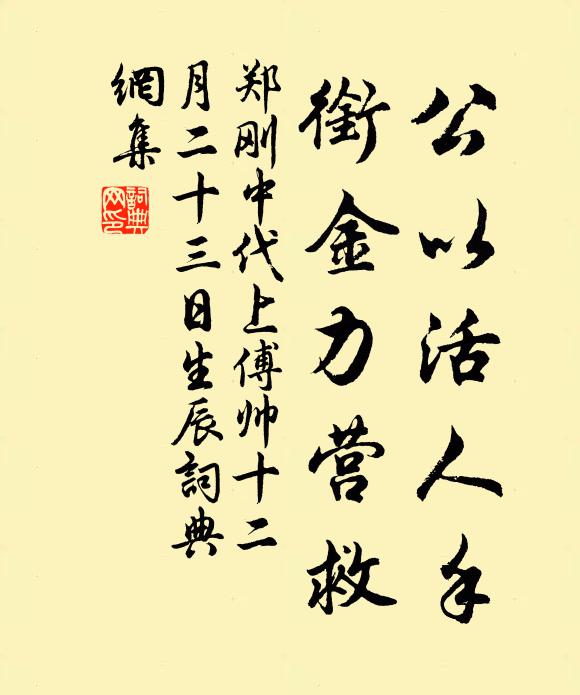 公以活人手
銜金力营救
郑刚中代上傅帅十二
月二十三日生辰詞典
網集
詞典網印